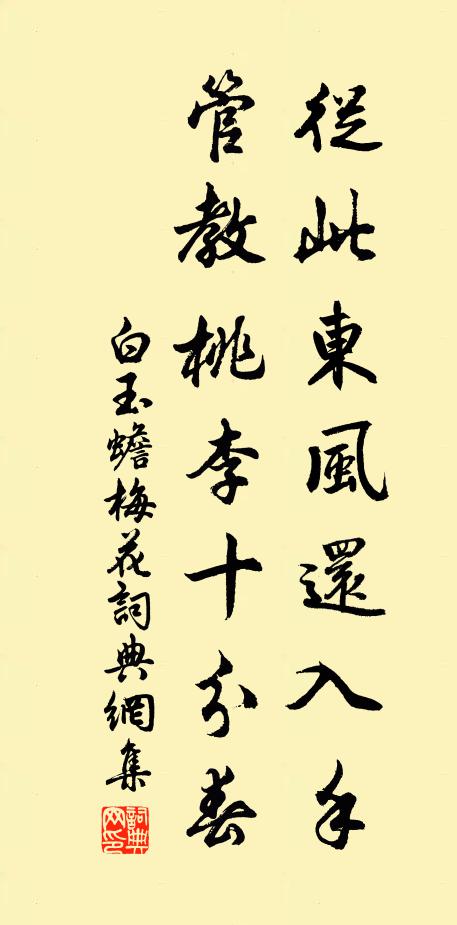 從此東風還入手
管教桃李十分春
白玉蟾梅花詞典網集
詞典
网印